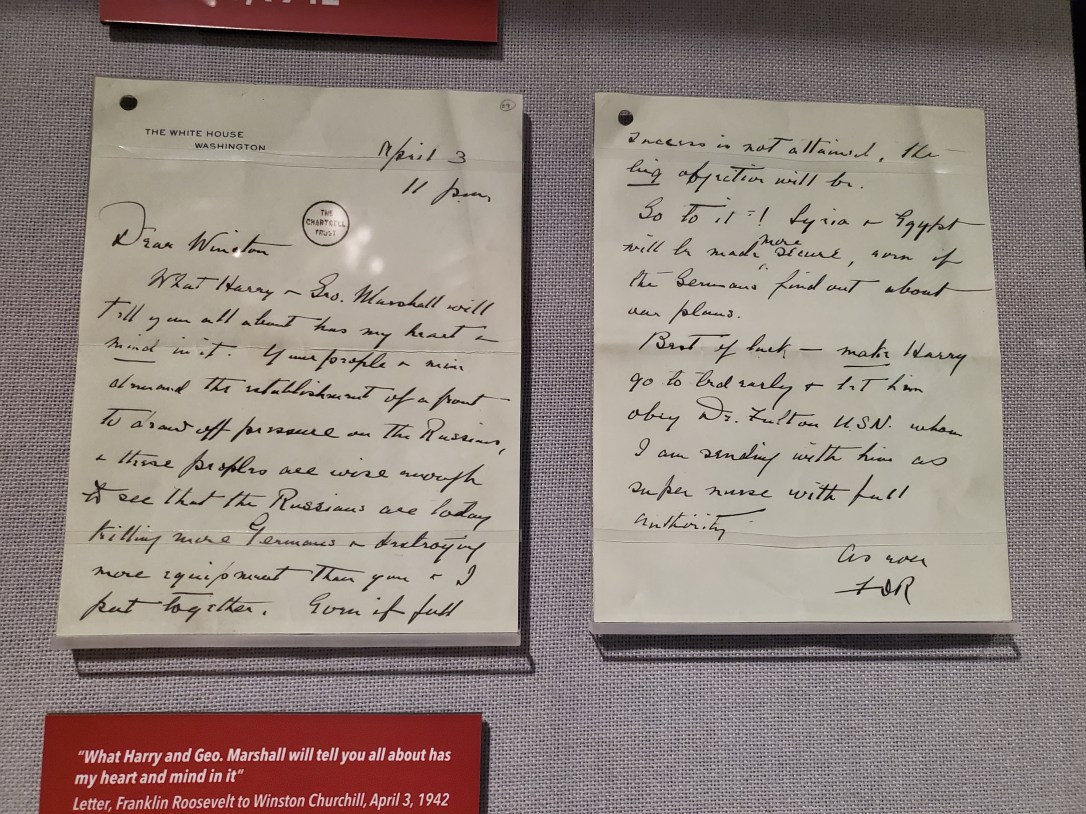 THE WHITE HOUSE
WASHINGTON
April 3
11 p.m.
THE
CHARTWELL
TRUST
Dear Winston
What Harry & Geo. Marshall will
tell you all about has my heart &
mind in it. Your people & mine
demand the establishment of a front
to draw off pressure on the Russians,
& these peoples are wise enough
to see that the Russians are today
killing more Germans & destroying
more equipment than you & I
put together. Even if full
success is not attained, the
big objective will be.
Go to it! Syria & Egypt
will be made more secure, even if
the Germans find out about
our plans.
Best of luck — make Harry
go to bed early & let him
obey Dr. Fulton U.S.N. whom
I am sending with him as
super nurse with full
authority
As ever
FDR
"What Harry and Geo. Marshall will tell you all about has
my heart and mind in it"
Letter, Franklin Roosevelt to Winston Churchill, April 3, 1942